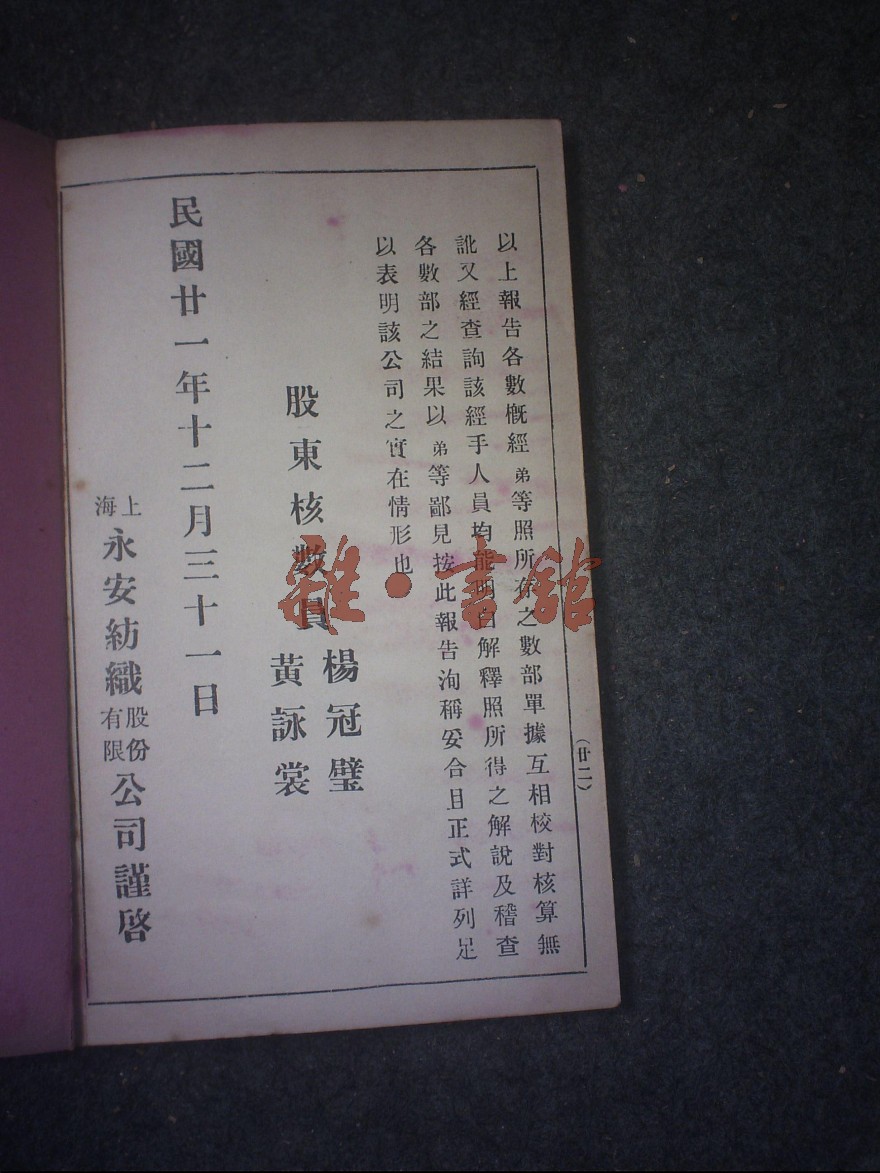 以上報告各數槪經弟等照所存之數部單據互相校對核算無
訛又經查詢該經手人員均能明白解釋照所得之解說及稽查
各數部之結果以弟等鄙見按此報告洵稱妥合且正式詳列足
以表明該公司之實在情形也
股東核數員
楊冠璧
黃詠裳
民國廿一年十二月三十一日
上海永安紡織股份有限公司謹啓
（廿二）
雜·書館